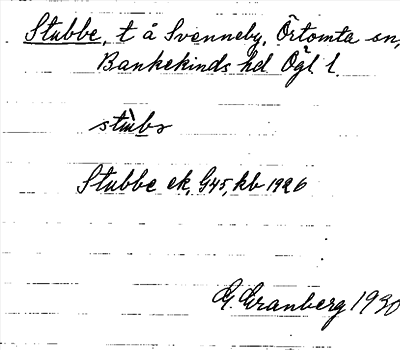 Stubbe, t å Svenneby, Örtomta sn,
Bankekinds hd Ögl l.
stùbs
Stubbe ek, G45, kb 1926
G. Granberg 1930